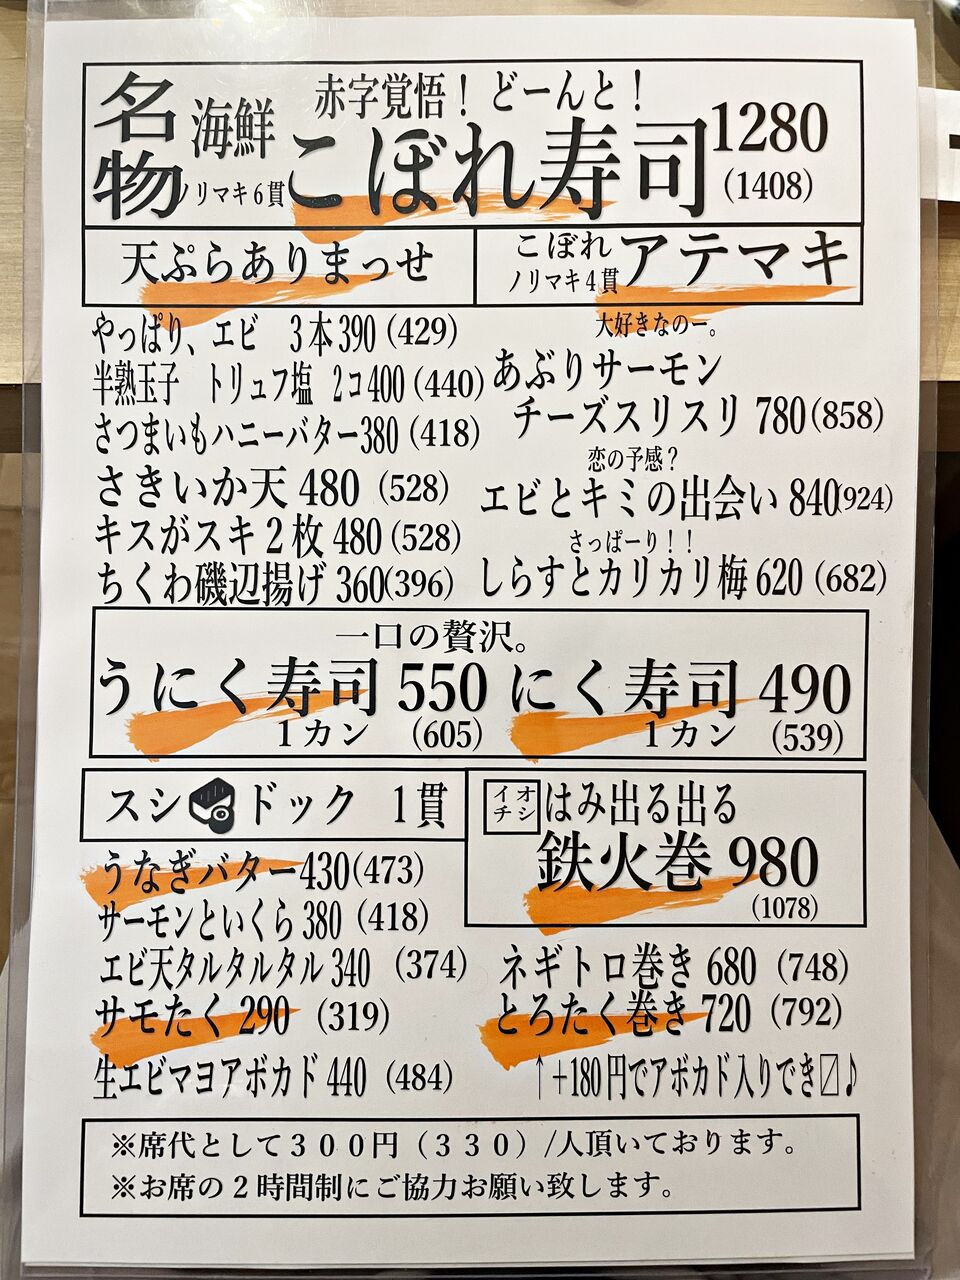 名物 海鮮 赤字覚悟！ どーんと！
ノリマキ6貫 こぼれ寿司 1280
(1408)
天ぷらありまっせ
やっぱり、エビ　3本390 (429)
半熟玉子　トリュフ塩　2コ400 (440)
さつまいもハニーバター380 (418)
さきいか天 480 (528)
キスがスキ2枚 480 (528)
ちくわ磯辺揚げ 360(396)
こぼれ
ノリマキ4貫 アテマキ
大好きなのー。
あぶりサーモン
チーズスリスリ 780(858)
恋の予感？
エビとキミの出会い 840(924)
さっぱーり！！
しらすとカリカリ梅 620 (682)
一口の贅沢。
うにく寿司 550
1カン (605)
にく寿司 490
1カン (539)
スシドック 1貫
うなぎバター430(473)
サーモンといくら 380 (418)
エビ天タルタルタル 340 (374)
サモたく 290 (319)
生エビマヨアボカド 440 (484)
イチオシ はみ出る出る
鉄火巻 980
(1078)
ネギトロ巻き 680 (748)
とろたく巻き 720 (792)
↑+180円でアボカド入りでき〼♪
※席代として３００円（３３０）/人頂いております。
※お席の２時間制にご協力お願い致します。